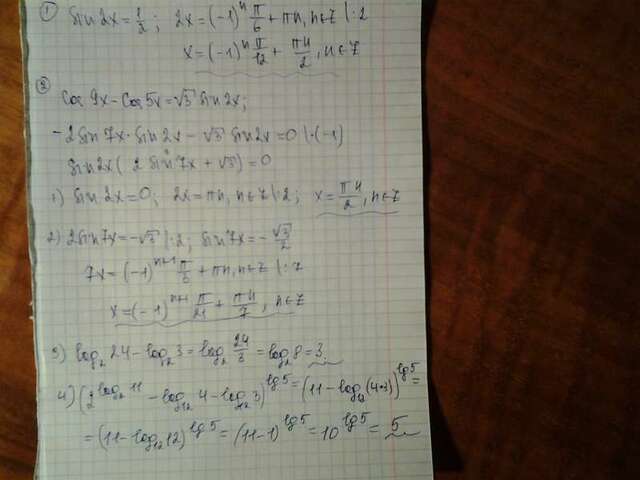 1) sin 2x = 1/2; 2x = (-1)ⁿ π/6 + πn, n∈Z |:2
x = (-1)ⁿ π/12 + πn/2, n∈Z
2)
Cos 9x - Cos 5x = √3 sin 2x;
-2 sin 7x · sin 2x - √3 sin 2x = 0 |·(-1)
sin 2x (2 sin 7x + √3) = 0
1) sin 2x = 0; 2x = πn, n∈Z |:2; x = πn/2, n∈Z
2) 2 sin 7x = -√3 |:2; sin 7x = -√3/2
7x = (-1)ⁿ⁺¹ π/3 + πn, n∈Z |:7
x = (-1)ⁿ⁺¹ π/21 + πn/7, n∈Z
3) log₂ 24 - log₂ 3 = log₂ 24/3 = log₂ 8 = 3
4) (2^(log₂ 11) - log₁₂ 4 - log₁₂ 3)^(lg 5) = (11 - log₁₂ (4·3))^(lg 5) =
= (11 - log₁₂ 12)^(lg 5) = (11 - 1)^(lg 5) = 10^(lg 5) = 5